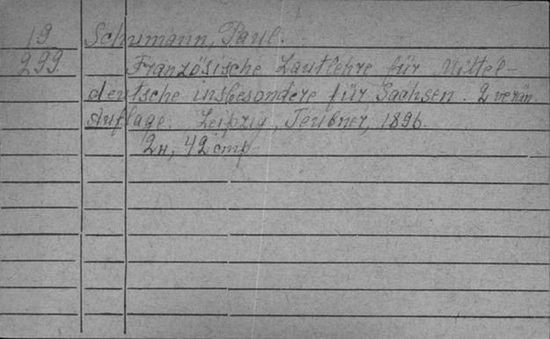 19 Schumann, Paul.
299 Französische Lautlehre für Mittel-
deutsche insbesondere für Sachsen. 2 verän.
Auflage. Leipzig, Teubner, 1896.
2н, 42 стр